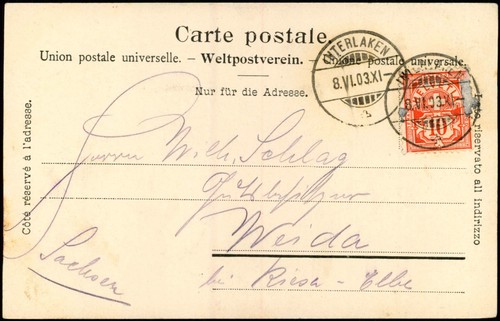 Carte postale.
Union postale universelle. – Weltpostverein. – Unione postale universale.
Nur für die Adresse.
Côté réservé à l'adresse.
Lato riservato all indirizzo
INTERLAKEN
8.VI.03.XI-
10
Herrn Wilh. Schlag
Gutsbesitzer
Weida
bei Riesa-Elbe
Sachsen